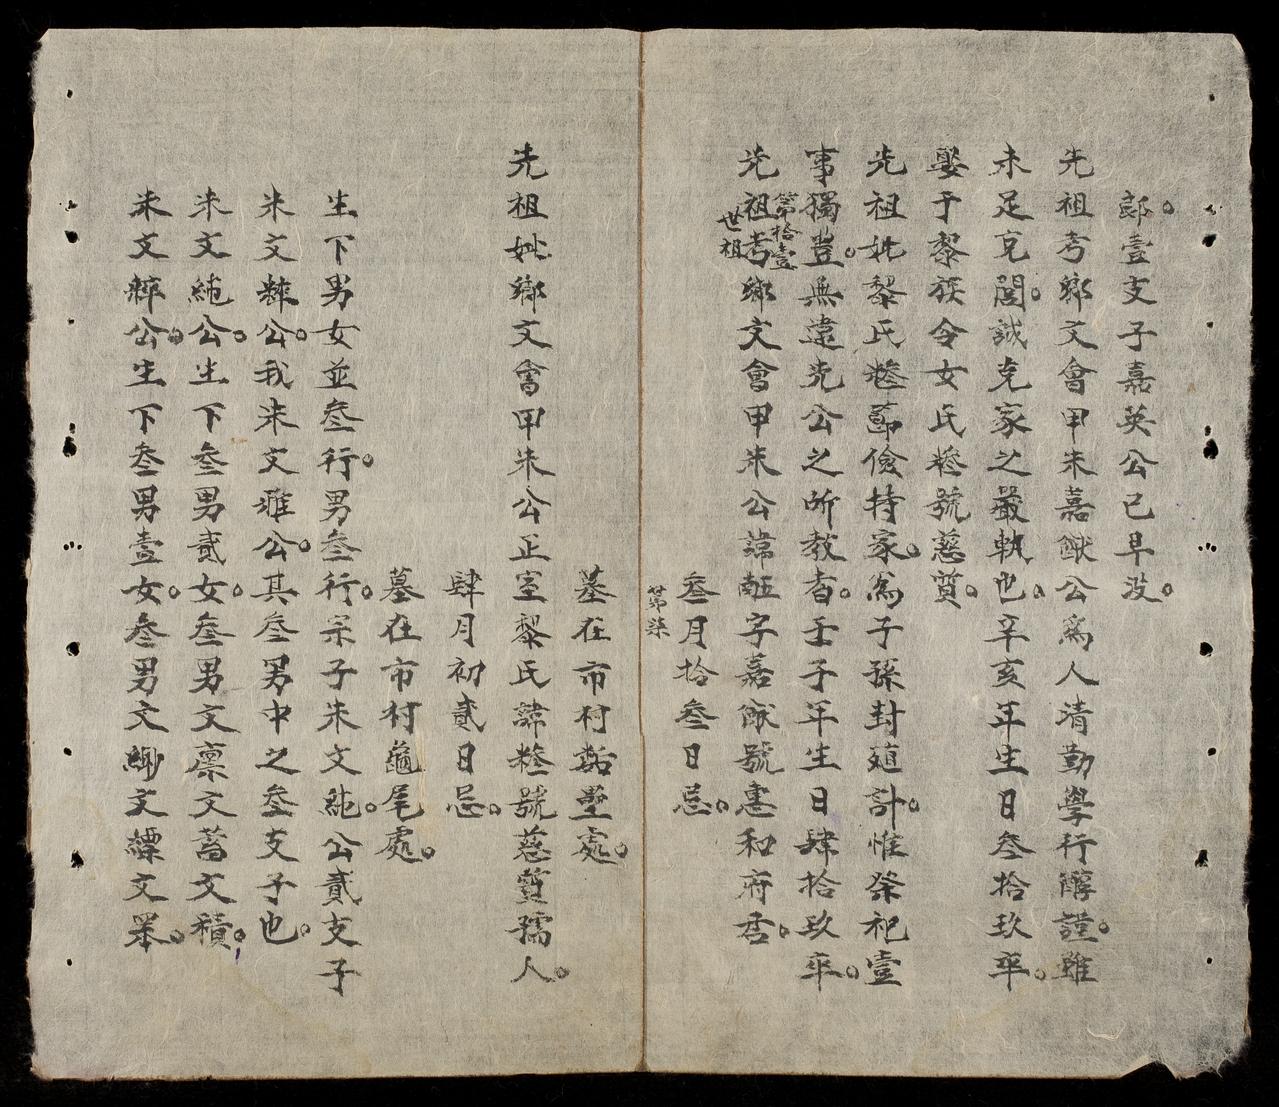 郎壹支子嘉英公已早没
先祖考鄉文會甲朱嘉猷公爲人清勤學行醇謹雖
未足克閏誠克家之嚴執也辛亥年生日叁拾玖卒
娶于黎族令女氏糝號慈質
先祖妣黎氏糝節儉持家爲子孫封殖計惟祭祀壹
事獨豊無違先公之所教者壬子年生日肆拾玖卒
第拾壹
先祖考鄉文會甲朱公諱字嘉猷號惠和府君
世祖
叁月拾叁日忌
第柒
墓在市村處
先祖妣鄉文會甲朱公正室黎氏諱糝號慈質孺人
肆月初貳日忌
墓在市村龜尾處
生下男女並叁行男叁行宗子朱文純公貳支子
朱文粹公我朱文雅公其叁男中之叁支子也
朱文純公生下叁男貳女叁男文廪文蓄文積
朱文粹公生下叁男壹女叁男文文縹文